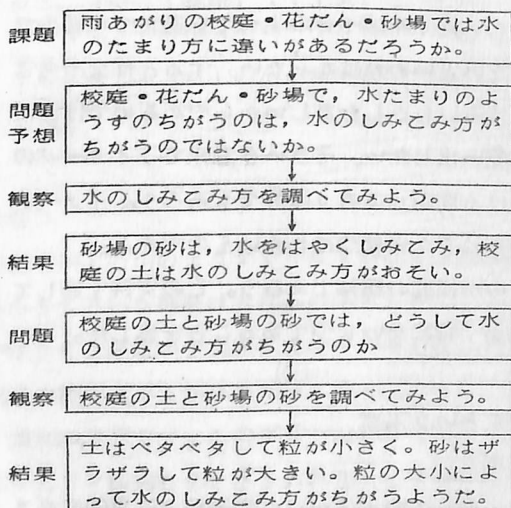 課題
雨あがりの校庭・花だん・砂場では水
のたまり方に違いがあるだろうか。
問題
予想
校庭・花だん・砂場で，水たまりのよ
うすのちがうのは，水のしみこみ方が
ちがうのではないか。
観察
水のしみこみ方を調べてみよう。
結果
砂場の砂は，水をはやくしみこみ，校
庭の土は水のしみこみ方がおそい。
問題
校庭の土と砂場の砂では，どうして水
のしみこみ方がちがうのか
観察
校庭の土と砂場の砂を調べてみよう。
結果
土はベタベタして粒が小さく。砂はザ
ラザラして粒が大きい。粒の大小によ
って水のしみこみ方がちがうようだ。